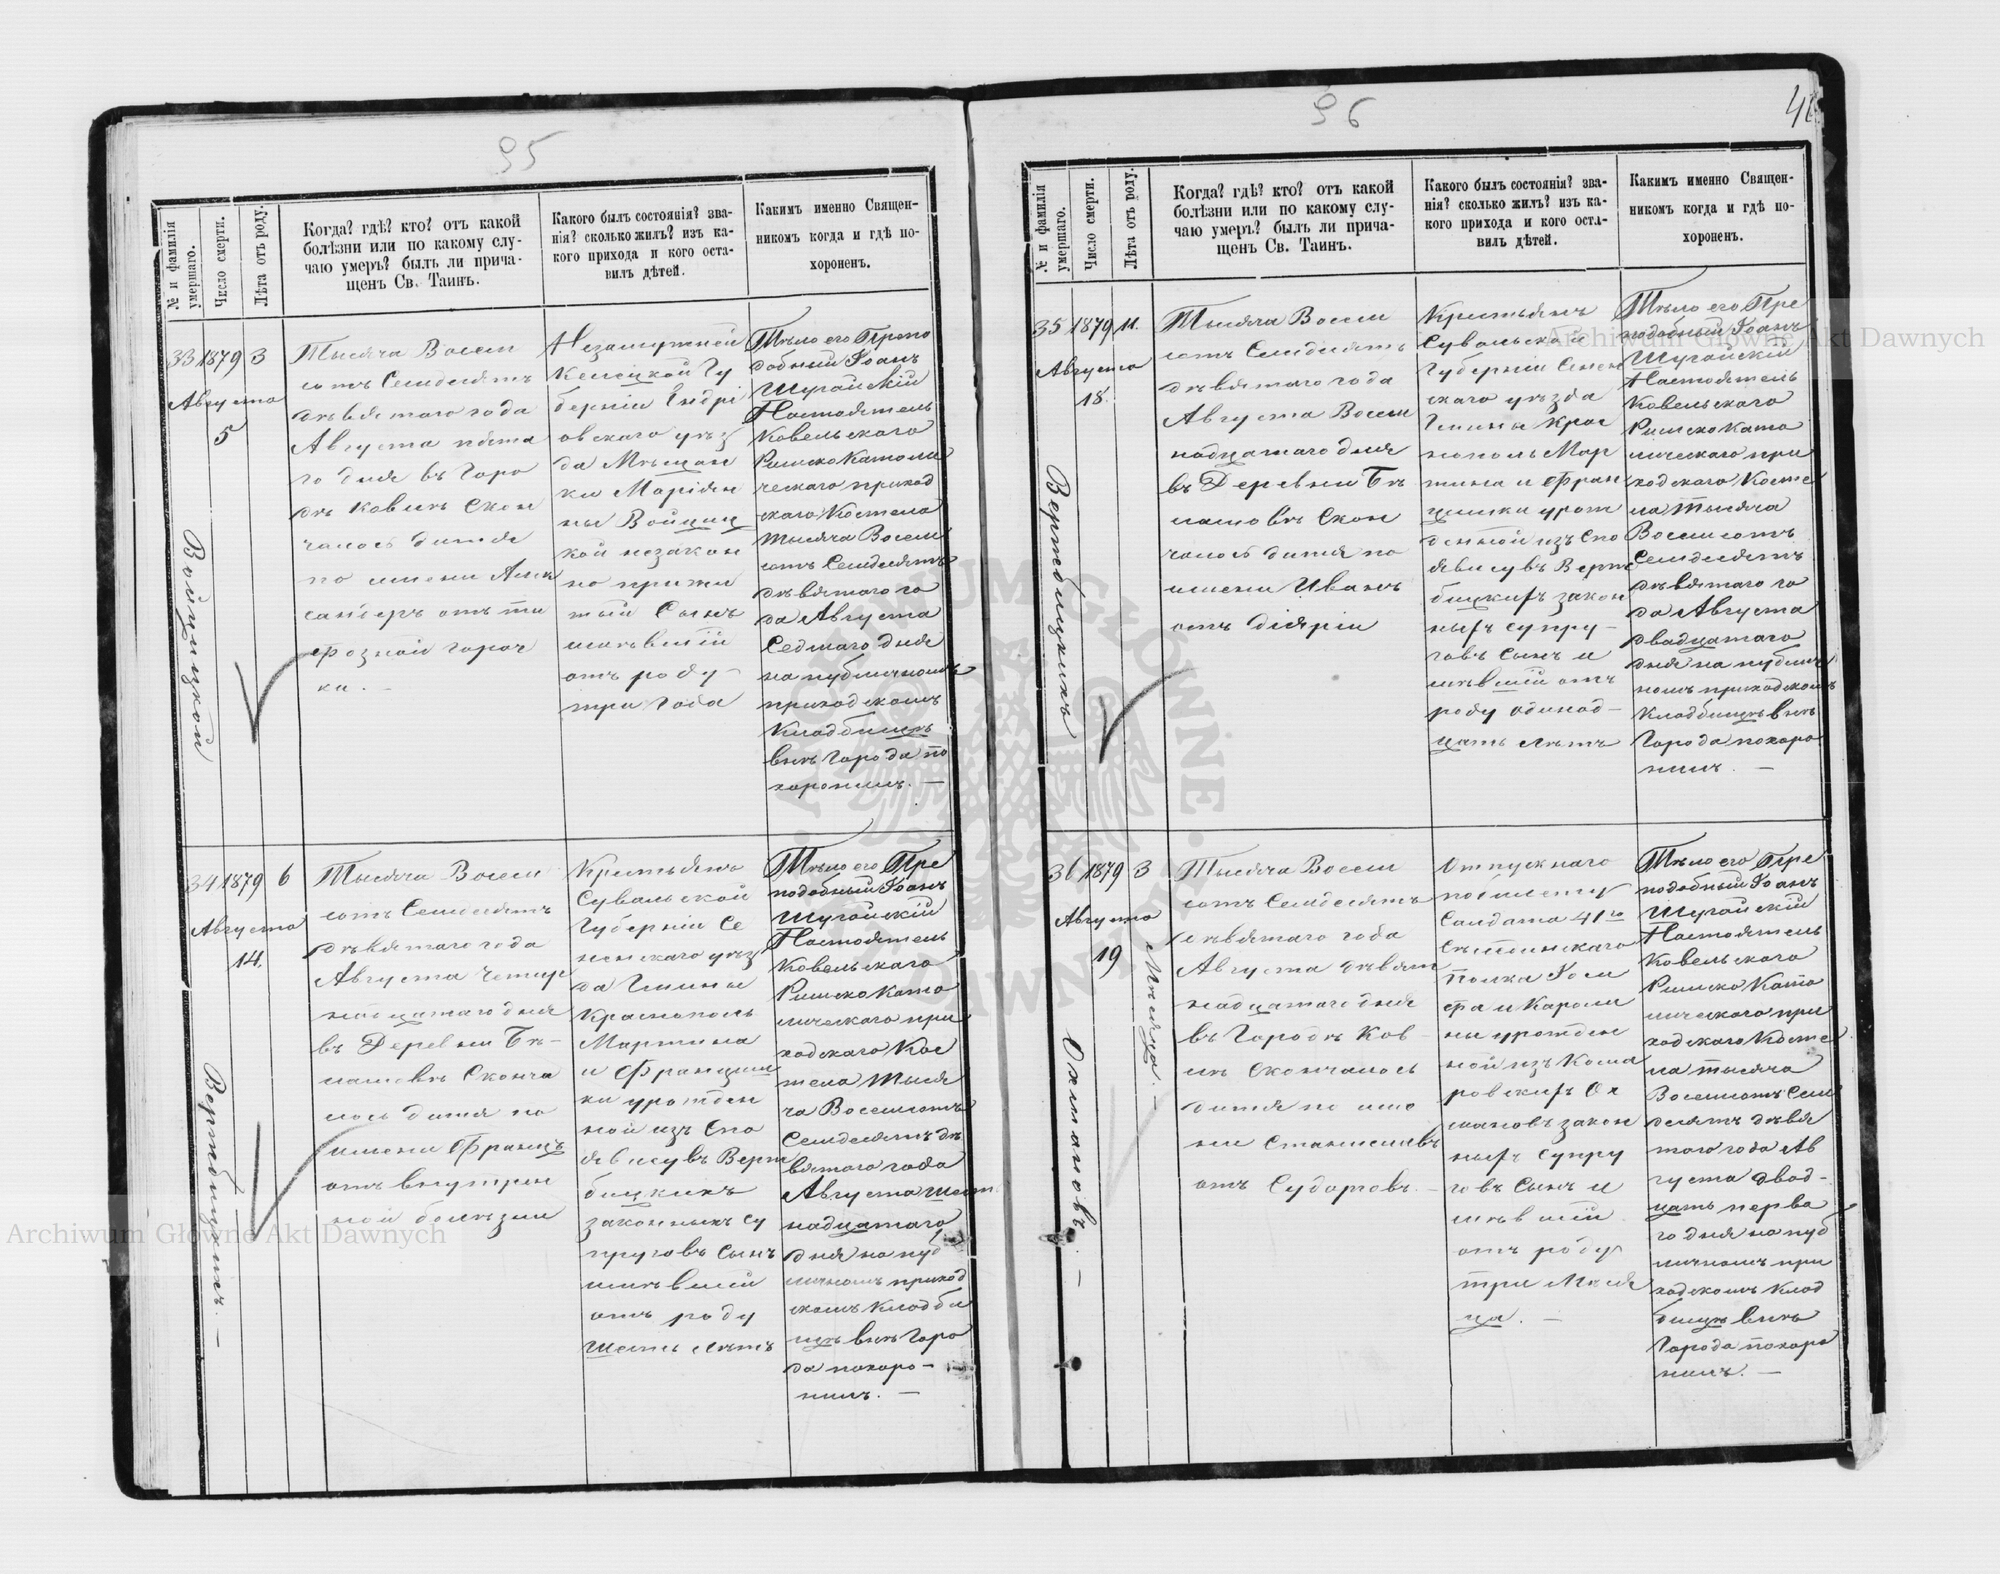 95
№ и фамилія умершаго.
Число смерти.
Лѣта отъ роду.
Когда? гдѣ? кто? отъ какой
болѣзни или по какому слу-
чаю умеръ? былъ ли прича-
щенъ Св. Таинъ.
Какого былъ состоянія? зва-
нія? сколько жилъ? изъ ка-
кого прихода и кого оста-
вилъ дѣтей.
Какимъ именно Священ-
никомъ когда и гдѣ по-
хороненъ.
33
Войцицкой
1879
Августа
5
3
Тысяча Восем
сотъ Семдесятъ
дѣвятаго года
Августа пята
го дня въ Горо
дѣ Ковлѣ Скон
чалось дитя
по имени Алек
сандеръ отъ ти
фозной гороч
ки. –
Незамужней
Келецкой Гу
берніи Ендрі
овскаго уѣз
да Мѣщан
ки Маріян
ны Войциц
кой незакон
но прижи
тый Сынъ
имѣвшій
отъ роду
три года
Тѣло его Препо
добный Іоанъ
Шугайскій
Настоятель
Ковельскаго
Римско Католи
ческаго приход
скаго Костела
тысяча Восем
сотъ Семдесятъ
дѣвятаго го
да Августа
Седмаго дня
на публичномъ
приходскомъ
Кладбищѣ
внѣ Города по
хоронилъ. —
34
Вертбицкихъ. –
1879
Августа
14.
6
Тысяча Восем
сотъ Семдесятъ
дѣвятаго года
Августа Четыр
надцатаго дня
въ Деревни Бѣ-
лашевѣ Сконча
лось дитя по
имени Францъ
отъ внутрен
ной болѣзни
Крестьянъ
Сувальской
Губерніи Се
ненскаго уѣз
да Гмины
Краснополь
Мартина
и Францыш
ки урожден
ной изъ Спо
явисувъ Верт
бицкихъ
законныхъ су
пруговъ Сынъ
имѣвшій
отъ роду
Шесть лѣтъ
Тѣло его Пре
подобный Іоанъ
Шугайскій
Настоятель
Ковельскаго
Римско Като
лическаго при
ходскаго Кос
тела Тыся
ча Восемсотъ
Семдесятъ дѣ
вятаго года
Августа шест
надцатаго
дня на пуб
личномъ приход
скомъ кладби
щѣ внѣ Горо
да похоро-
нилъ. —
96
№ и фамилія умершаго.
Число смерти.
Лѣта отъ роду.
Когда? гдѣ? кто? отъ какой
болѣзни или по какому слу-
чаю умеръ? былъ ли прича-
щенъ Св. Таинъ.
Какого былъ состоянія? зва-
нія? сколько жилъ? изъ ка-
кого прихода и кого оста-
вилъ дѣтей.
Какимъ именно Священ-
никомъ когда и гдѣ по-
хороненъ.
35
Вертбицкихъ
1879
Августа
18.
11.
Тысяча Восем
сотъ Семдесятъ
дѣвятаго года
Августа Восем
надцатаго дня
въ Деревни Бѣ
лашовѣ Скон
чалось дитя по
имени Иванъ
отъ діяріи
Крестьянъ
Сувальской
Губерніи Сенен
скаго уѣзда
Гмины Крас
нополь Мар
тина и Фран
цишки урож
денной изъ Спо
явисувъ Верт
бицкихъ закон
ныхъ супру-
говъ Сынъ и
мѣвшій отъ
роду одинад-
цать лѣтъ
Тѣло его Пре
подобный Іоанъ
Шугайскій
Настоятель
Ковельскаго
Римско Като
лическаго при
ходскаго Косте
ла тысяча
Восемсотъ
Семдесятъ
дѣвятаго го
да Августа
двадцатаго
дня на публич
номъ приходскомъ
Кладбищѣ внѣ
Города похоро
нилъ. —
36
Охмановъ. –
1879
Августа
19
3
Мѣсяца. –
Тысяча Восем
сотъ Семдесятъ
дѣвятаго года
Августа дѣвят
надцатаго дня
въ Городѣ Ков-
лѣ Скончалось
дитя по име
ни Станиславъ
отъ Судорговъ. –
Отпускнаго
по билету
Солдата 41го
Полка Іоси
фа и Кароли
ны урожден
ной изъ Кома
ровскихъ Ох
мановъ закон
ныхъ Супру
говъ Сынъ и
мѣвшій
отъ роду
три Мѣся
ца. –
Тѣло его Пре
подобный Іоанъ
Шугайскій
Настоятель
Ковельскаго
Римско Като
лическаго при
ходскаго Косте
ла тысяча
Восемсотъ Сем
десятъ дѣвя
таго года Ав
густа двад-
цать перва
го дня на пуб
личномъ при
ходскомъ Клад
бищѣ внѣ
Города похоро
нилъ. —
Archiwum Główne Akt Dawnych
Archiwum Główne Akt Dawnych